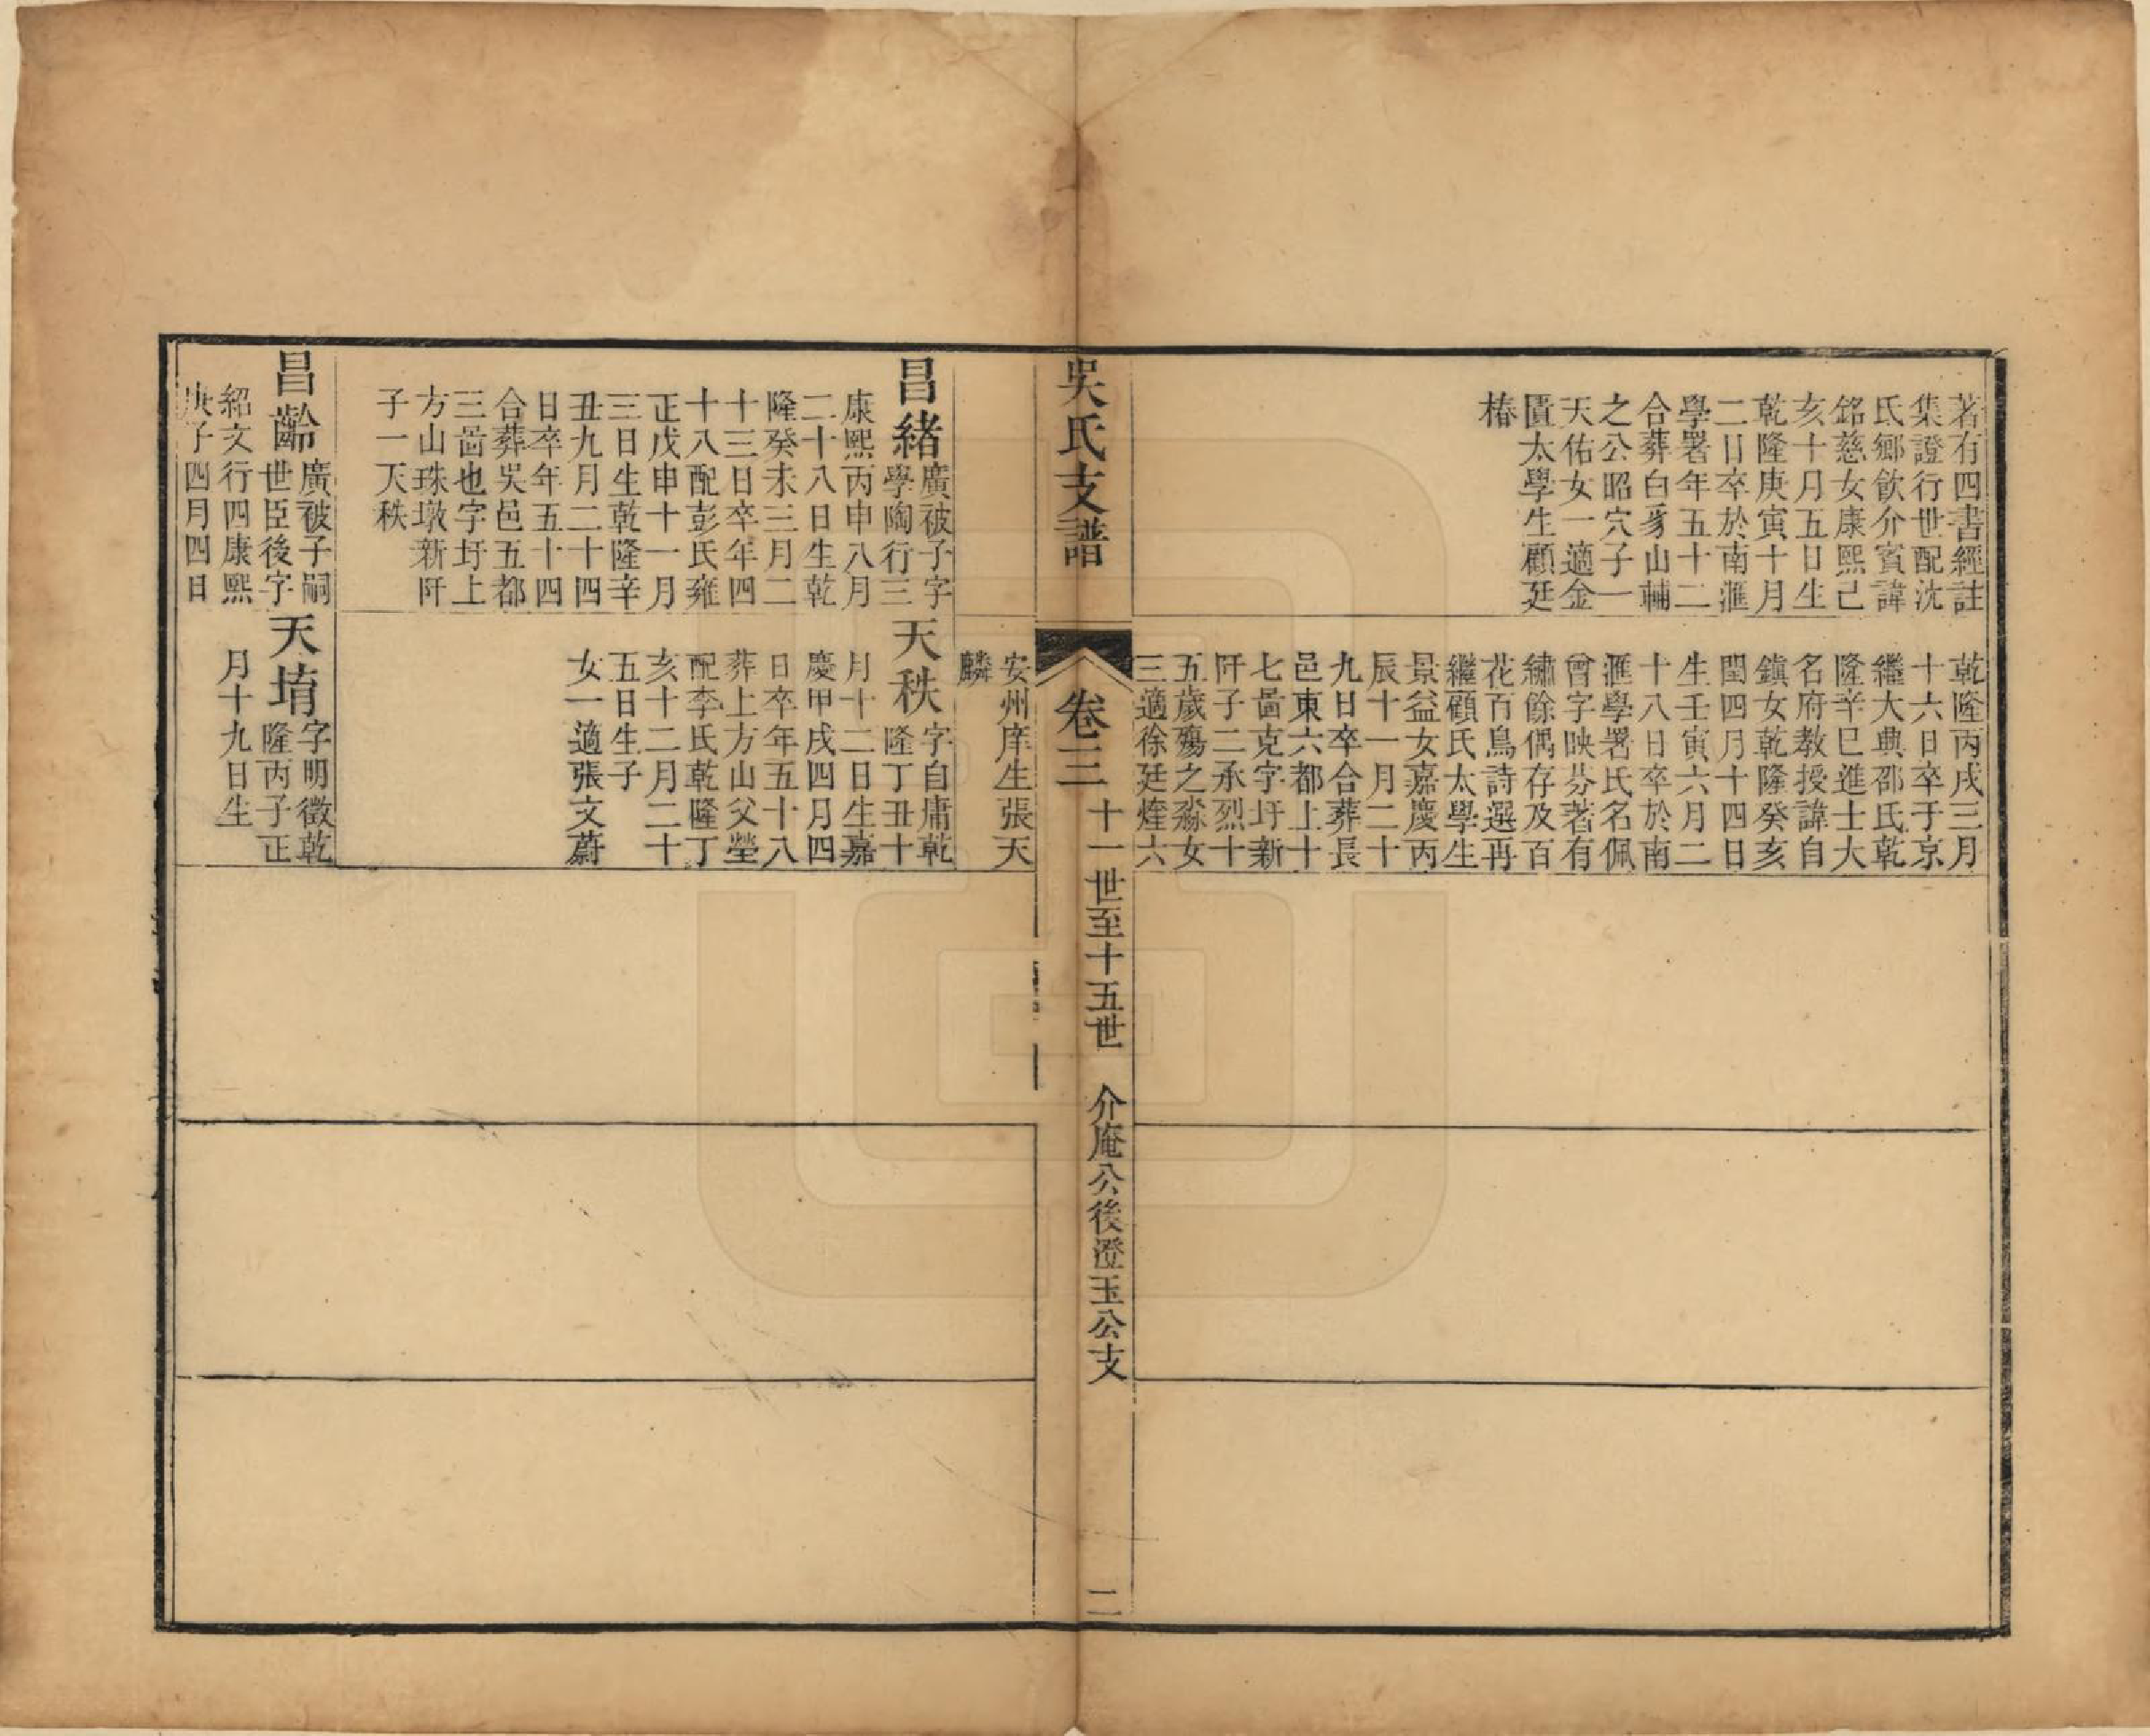 著有四書經註
集證行世配沈
氏鄉飲介賓諱
銘慈女康熙己
亥十月五日生
乾隆庚寅十月
二日卒於南滙
學署年五十二
合葬白豸山輔
之公昭穴子一
天佑女一適金
匱太學生顧廷
椿
乾隆丙戌三月
十六日卒于京
繼大典邵氏乾
隆辛巳進士大
名府教授諱自
鎮女乾隆癸亥
閏四月十四日
生壬寅六月二
十八日卒於南
滙學署氏名佩
曾字映芬著有
繡餘偶存及百
花百鳥詩選再
繼顧氏太學生
景益女嘉慶丙
辰十一月二十
九日卒合葬長
邑東六都上十
七啚克字圩新
阡子二承烈十
五歲殤之淼女
三適徐廷煃六
吳氏支譜
卷三
十一世至十五世 介庵公後澄玉公支
二
安州庠生張天
麟
昌緒
廣被子字
學陶行三
康熙丙申八月
二十八日生乾
隆癸未三月二
十三日卒年四
十八配彭氏雍
正戊申十一月
三日生乾隆辛
丑九月二十四
日卒年五十四
合葬吳邑五都
三啚也字圩上
方山珠墩新阡
子一天秩
天秩
字自庸乾
隆丁丑十
月十二日生嘉
慶甲戌四月四
日卒年五十八
葬上方山父塋
配李氏乾隆丁
亥十二月二十
五日生子
女一適張文蔚
昌齡
廣被子嗣
世臣後字
紹文行四康熙
庚子四月四日
天堉
字明徵乾
隆丙子正
月十九日生